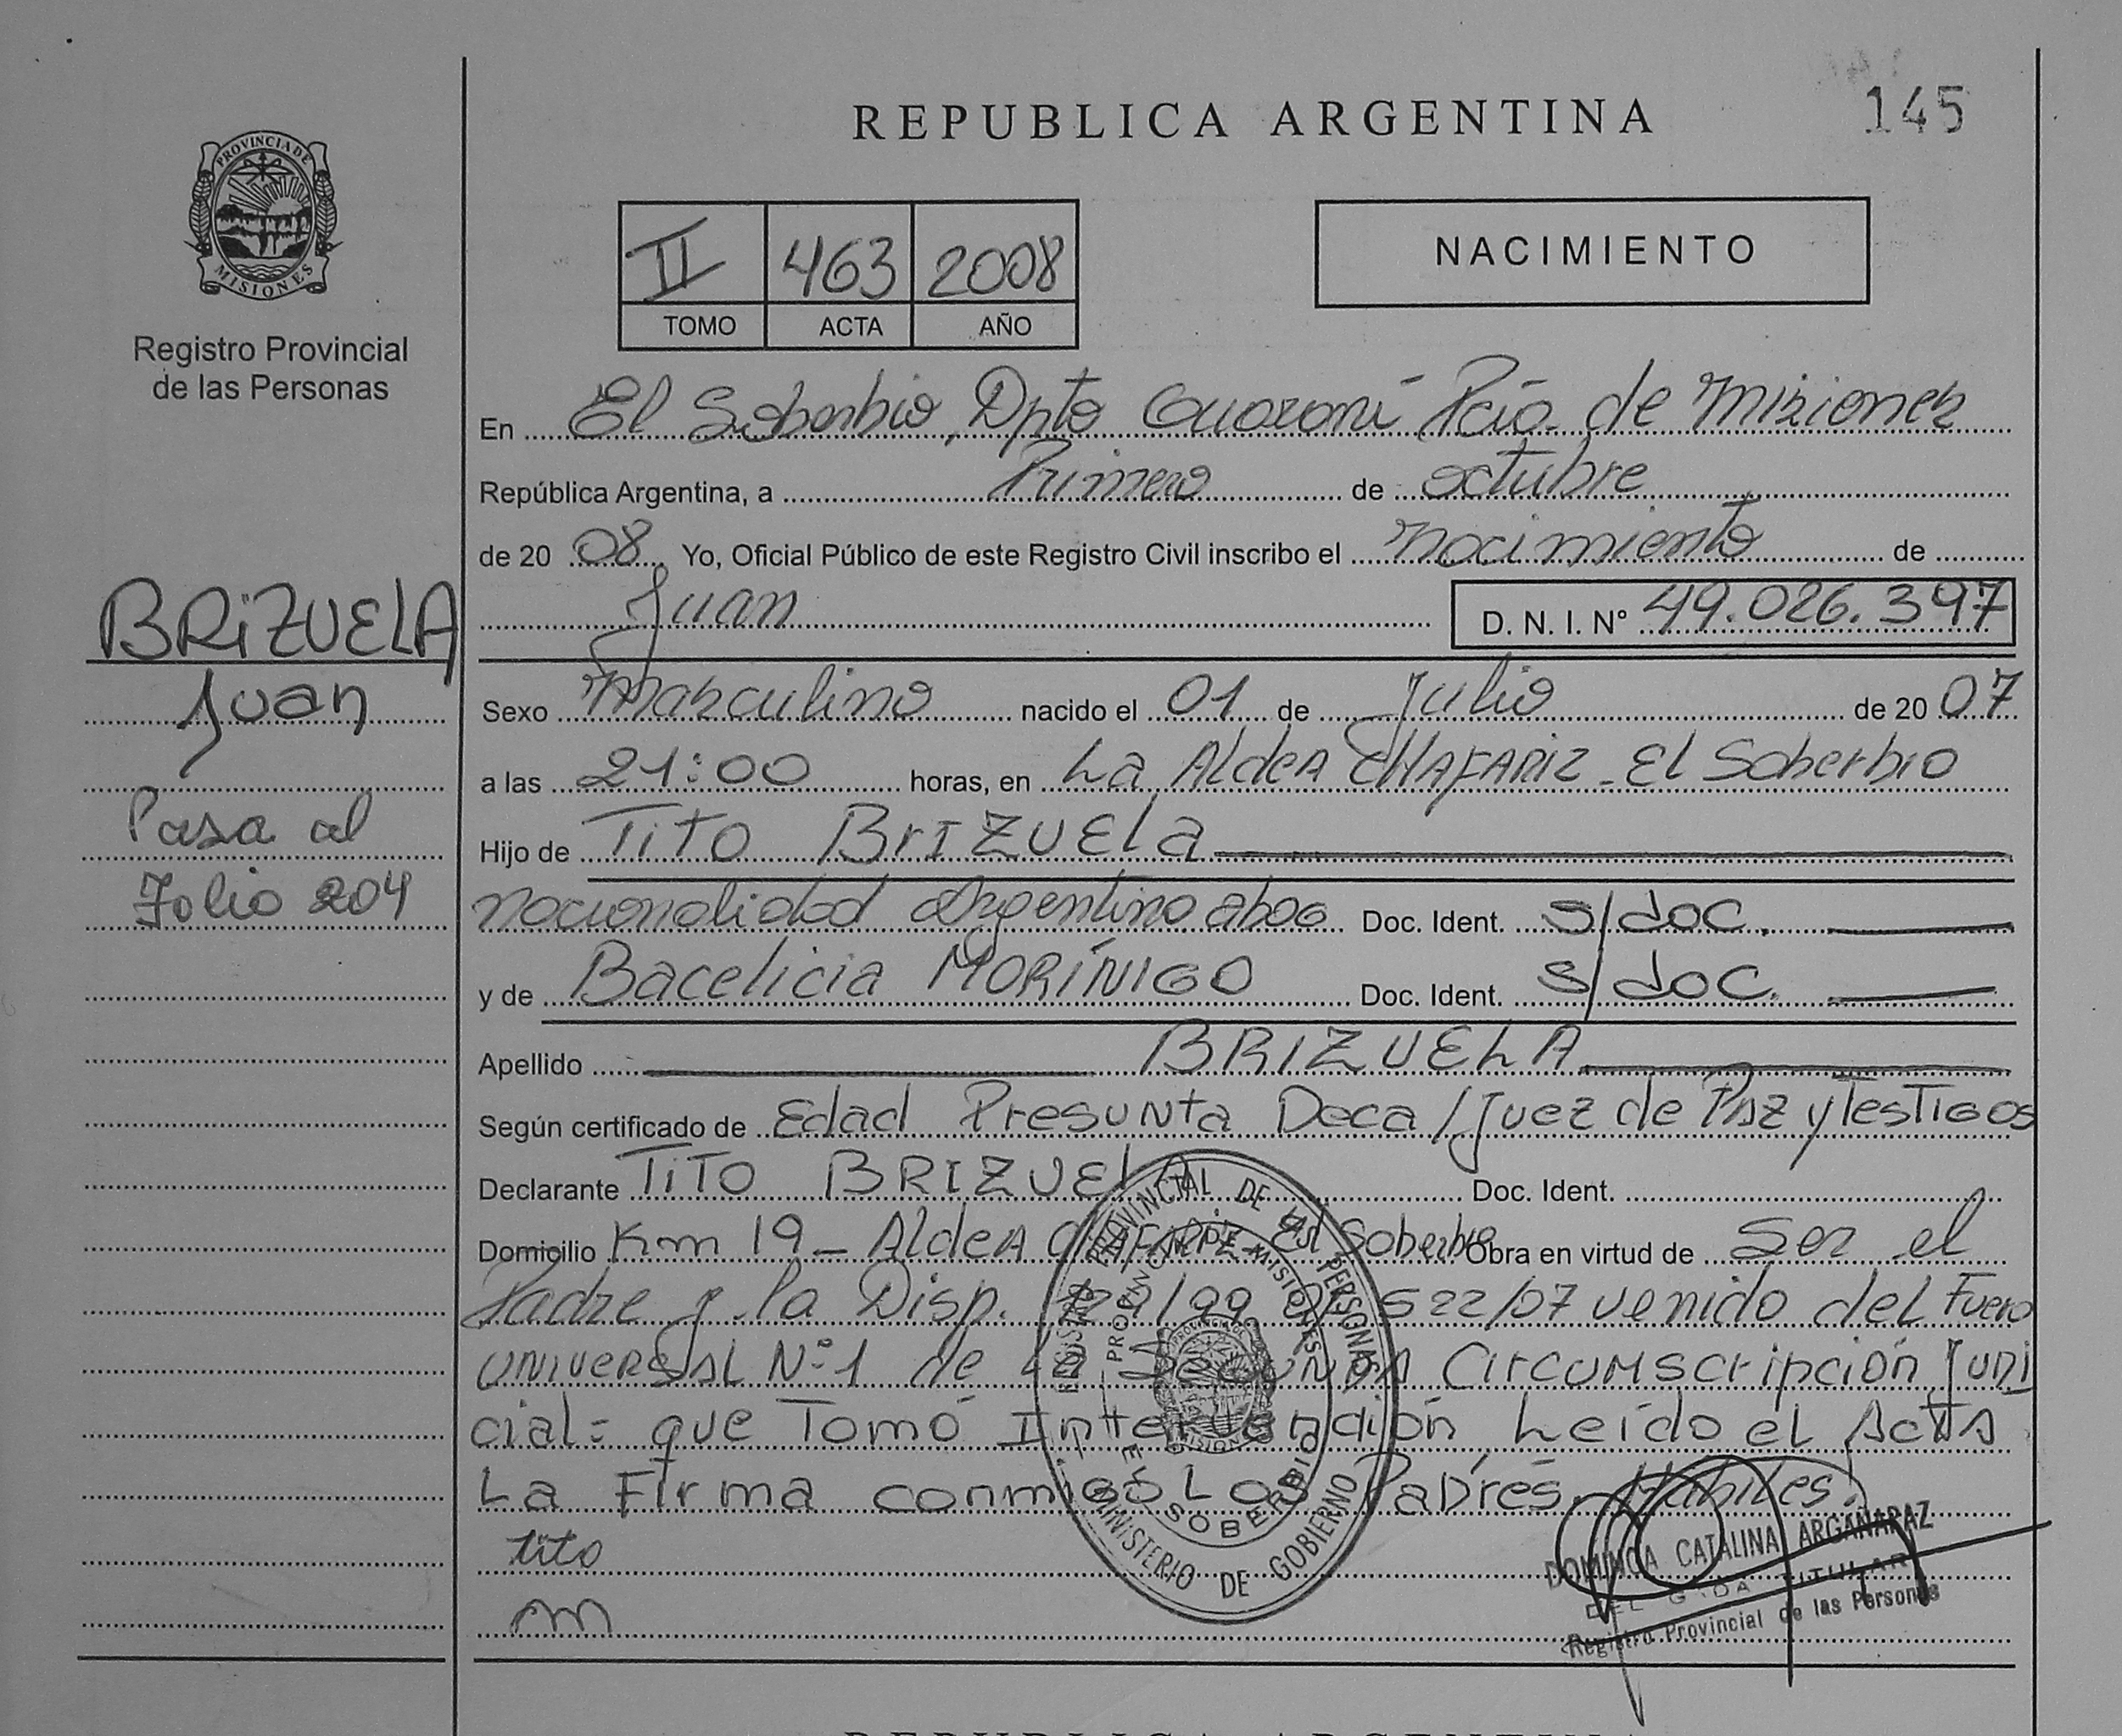 145
REPUBLICA ARGENTINA
PROVINCIA DE
MISIONES
Registro Provincial
de las Personas
II 463 2008
TOMO ACTA AÑO
NACIMIENTO
En El Soberbio, Dpto Guaraní Pcia. de Misiones
República Argentina, a Primero de octubre
de 20 08 Yo, Oficial Público de este Registro Civil inscribo el nacimiento de
Juan D. N. I. N° 49.026.397
BRIZUELA
Juan
Pasa al
Folio 204
Sexo masculino nacido el 01 de Julio de 20 07
a las 21:00 horas, en La Aldea CHAFARIZ - El Soberbio
Hijo de TiTO BrIZUEla
nacionalidad Argentino Doc. Ident. s/doc.
y de Bacelicia MORÍNIGO Doc. Ident. s/doc.
Apellido BRIZUELA
Según certificado de Edad Presunta Deca/Juez de Paz y Testigos
Declarante TiTO BRIZUELA Doc. Ident.
Domicilio Km 19 - Aldea CHAFARIZ - El Soberbio Obra en virtud de Ser el
Padre y la Disp. /99 522/07 venido del Fuero
UNIVERSAL N°1 de La Segunda Circumscripción Juni
cial= que Tomó Intervención Leído el Acta
La Firma conmigo Los Padres, Hábiles.
tito
m
REGISTRO PROVINCIAL DE LAS PERSONAS
PROVINCIA DE MISIONES
EL SOBERBIO
MINISTERIO DE GOBIERNO
DOMINGA CATALINA ARGAÑARAZ
DELEGADA TITULAR
Registro Provincial de las Personas
REPUBLICA ARGENTINA